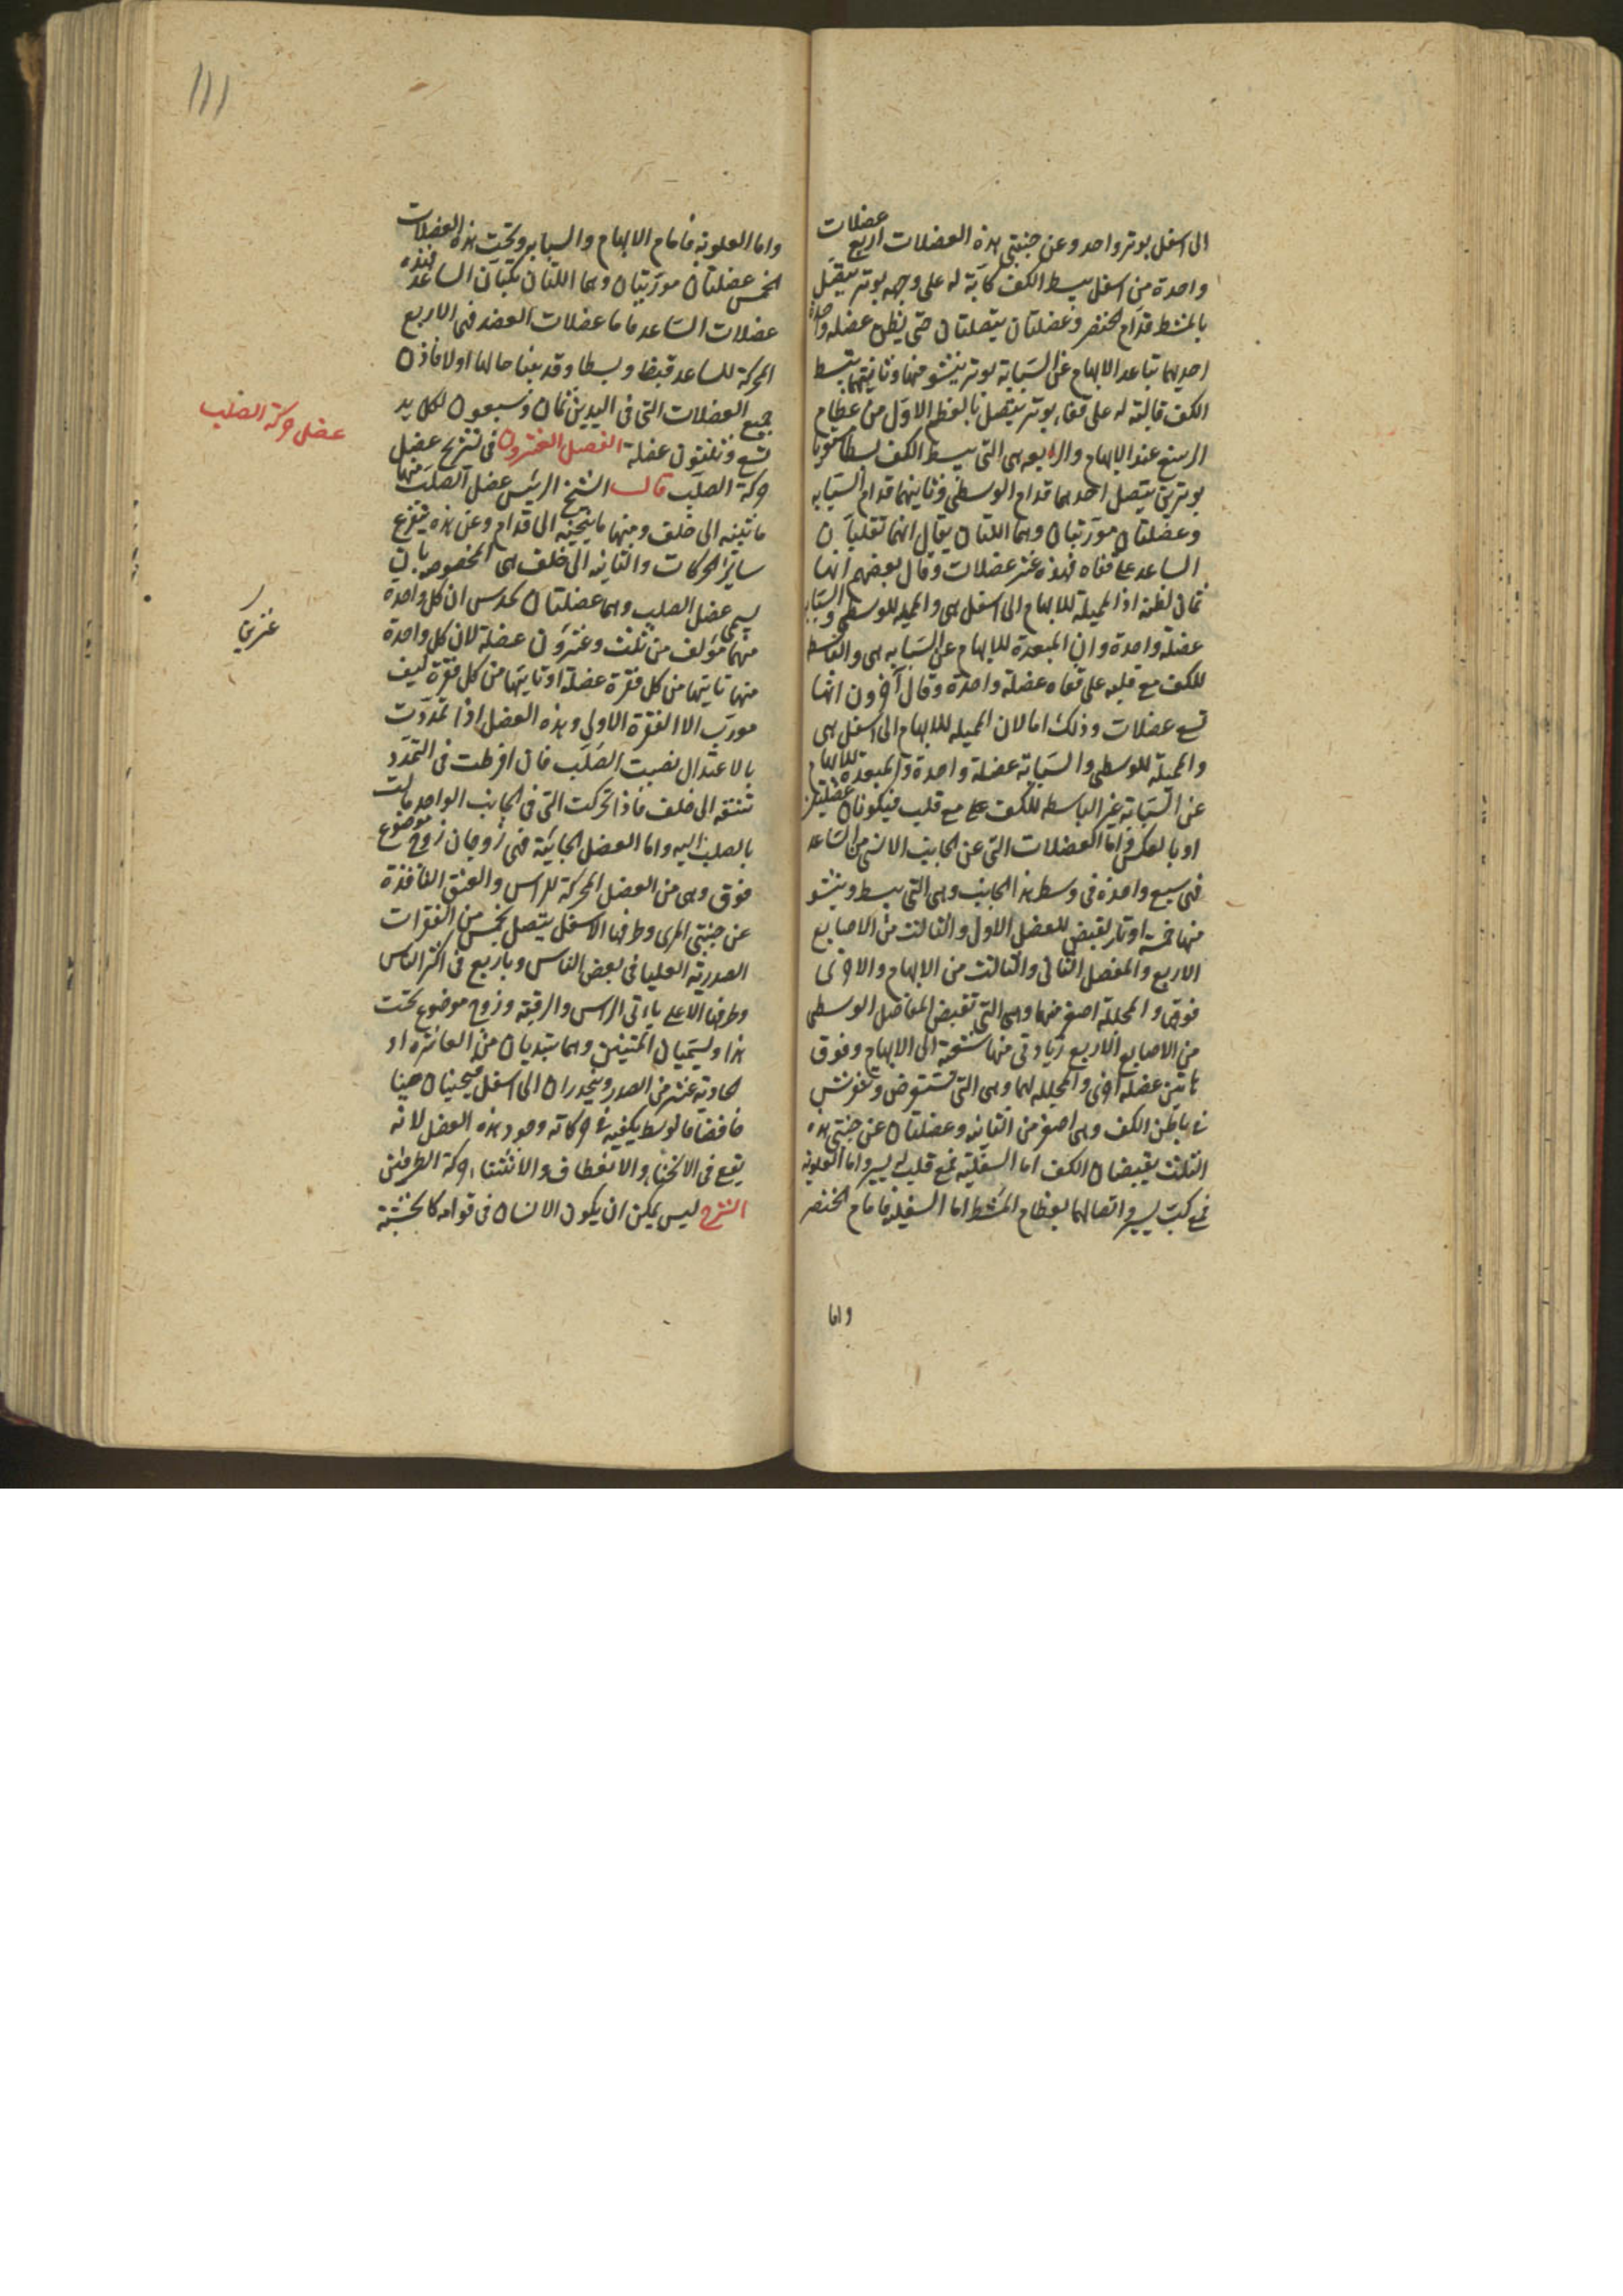 الى اسفل بوتر واحد وعن جنبتى هذه العضلات اربع عضلات
واحدة من اسفل يبسط الكف كابة له على وجهه بوتر يتصل
بالمشط قدام الخنصر وعضلتان يتصلتان حتى يظن عضله واحدة
احديهما تباعد الابهام عن السبابة بوتر ينشو منها وثانيتهما تبسط
الكف قالبة له على قفاه بوتر يتصل بالعظم الاول من عظام
الرسغ عند الابهام والرابعه هى التى يبسط الكف بسطا مستويا
بوترين يتصل احدهما قدام الوسطى وثانيهما قدام السبابه
وعضلتان موربتان وهما اللتان يقال انهما تقلبان
الساعد على قفاه فهذه عشر عضلات وقال بعضهم انها
ثمان لظنه اذا المميلة للابهام الى اسفل هى والمميله للوسطى والسبابه
عضلة واحدة وان المبعدة للابهام عن السبابه هى والباسط
للكف مع قلبه على قفاه عضلة واحدة وقال آخرون انها
تسع عضلات وذلك اما لان المميله للابهام الى اسفل هى
والمميلة للوسطى والسبابة عضلة واحدة والمبعدة للابهام
عن السبابة غير الباسطه للكف مع قلب فيكونان عضلتين
او بالعكس واما العضلات التى عن الجانب الانسى من الساعد
فهى سبع واحدة فى وسط هذا الجانب وهى التى يبسط وينشو
منها خمسة اوتار يقبض للمفصل الاول والثالث من الاصابع
الاربع والمفصل الثانى والثالث من الابهام والاخرى
فوق والمجللة اصغر منها وهى التى تقبض المفاصل الوسطى
من الاصابع الاربع زيادتى منها شعبة الى الابهام وفوق
هاتين عضله اخرى والمجلله لهما وهى التى تستعرض وتفرش
فى باطن الكف وهى اصغر من الثانيه وعضلتان عن جنبتى هذه
الثلث يقبضان الكف اما السفلية فمع قلب له يسير واما العلويه
فمع كب يسير واتصالهما بعظام المشط اما السفليه فامام الخنصر
واما
١١١
واما العلويه فامام الابهام والسبابه وتحت هذه العضلات
الخمس عضلتان موربتان وهما اللتان تكبان الساعد فهذه
عضلات الساعد فاما عضلات العضد فهى الاربع
المحركة للساعد قبضا وبسطا وقد بينا حالها اولا فاذن
جميع العضلات التى فى اليدين ثمان وسبعون لكل يد
تسع وثلثون عضلة الفصل العشرون فى تشريح عضل
حركة الصلب قال الشيخ الرئيس عضل الصلب منها
ما تثنيه الى خلف ومنها ما ينحنيه الى قدام وعن هذه يتفرع
ساير الحركات والثانيه الى خلف هى المخصوصه بان
يسمى عضل الصلب وهما عضلتان يحدس ان كل واحدة
منهما مؤلف من ثلث وعشرون عضلة لان كل واحدة
منها تاتيها من كل فقرة عضلة اذ تاتيها من كل فقرة ليف
مورب الا الفقرة الاولى وهذه العضل اذا تمددت
بالاعتدال نصبت الصلب فان افرطت فى التمدد
تثنته الى خلف فاذا تحركت التى فى الجانب الواحد مالت
بالصلب اليه واما العضل الحانية فهى زوجان زوج موضوع
فوق وهى من العضل المحركة للراس والعنق النافذة
عن جنبتى المرى وطرفها الاسفل يتصل بخمس من الفقرات
الصدرية العليا فى بعض الناس وباربع فى اكثر الناس
وطرفها الاعلى ياتى الراس والرقبة وزوج موضوع تحت
هذا ويسميان المتنين وهما يبتديان من العاشرة او
الحادية عشر من الصدر وينحدران الى اسفل فيحنيان حنيا
خافضا والوسط يكفيه فى حركاته وجود هذه العضل لانه
يتبع فى الانحناء والانعطاف والانثناء حركة الطرفين
الشرح ليس يمكن ان يكون الانسان فى قوامه كالخشبة
عضل حركة الصلب
عشرين